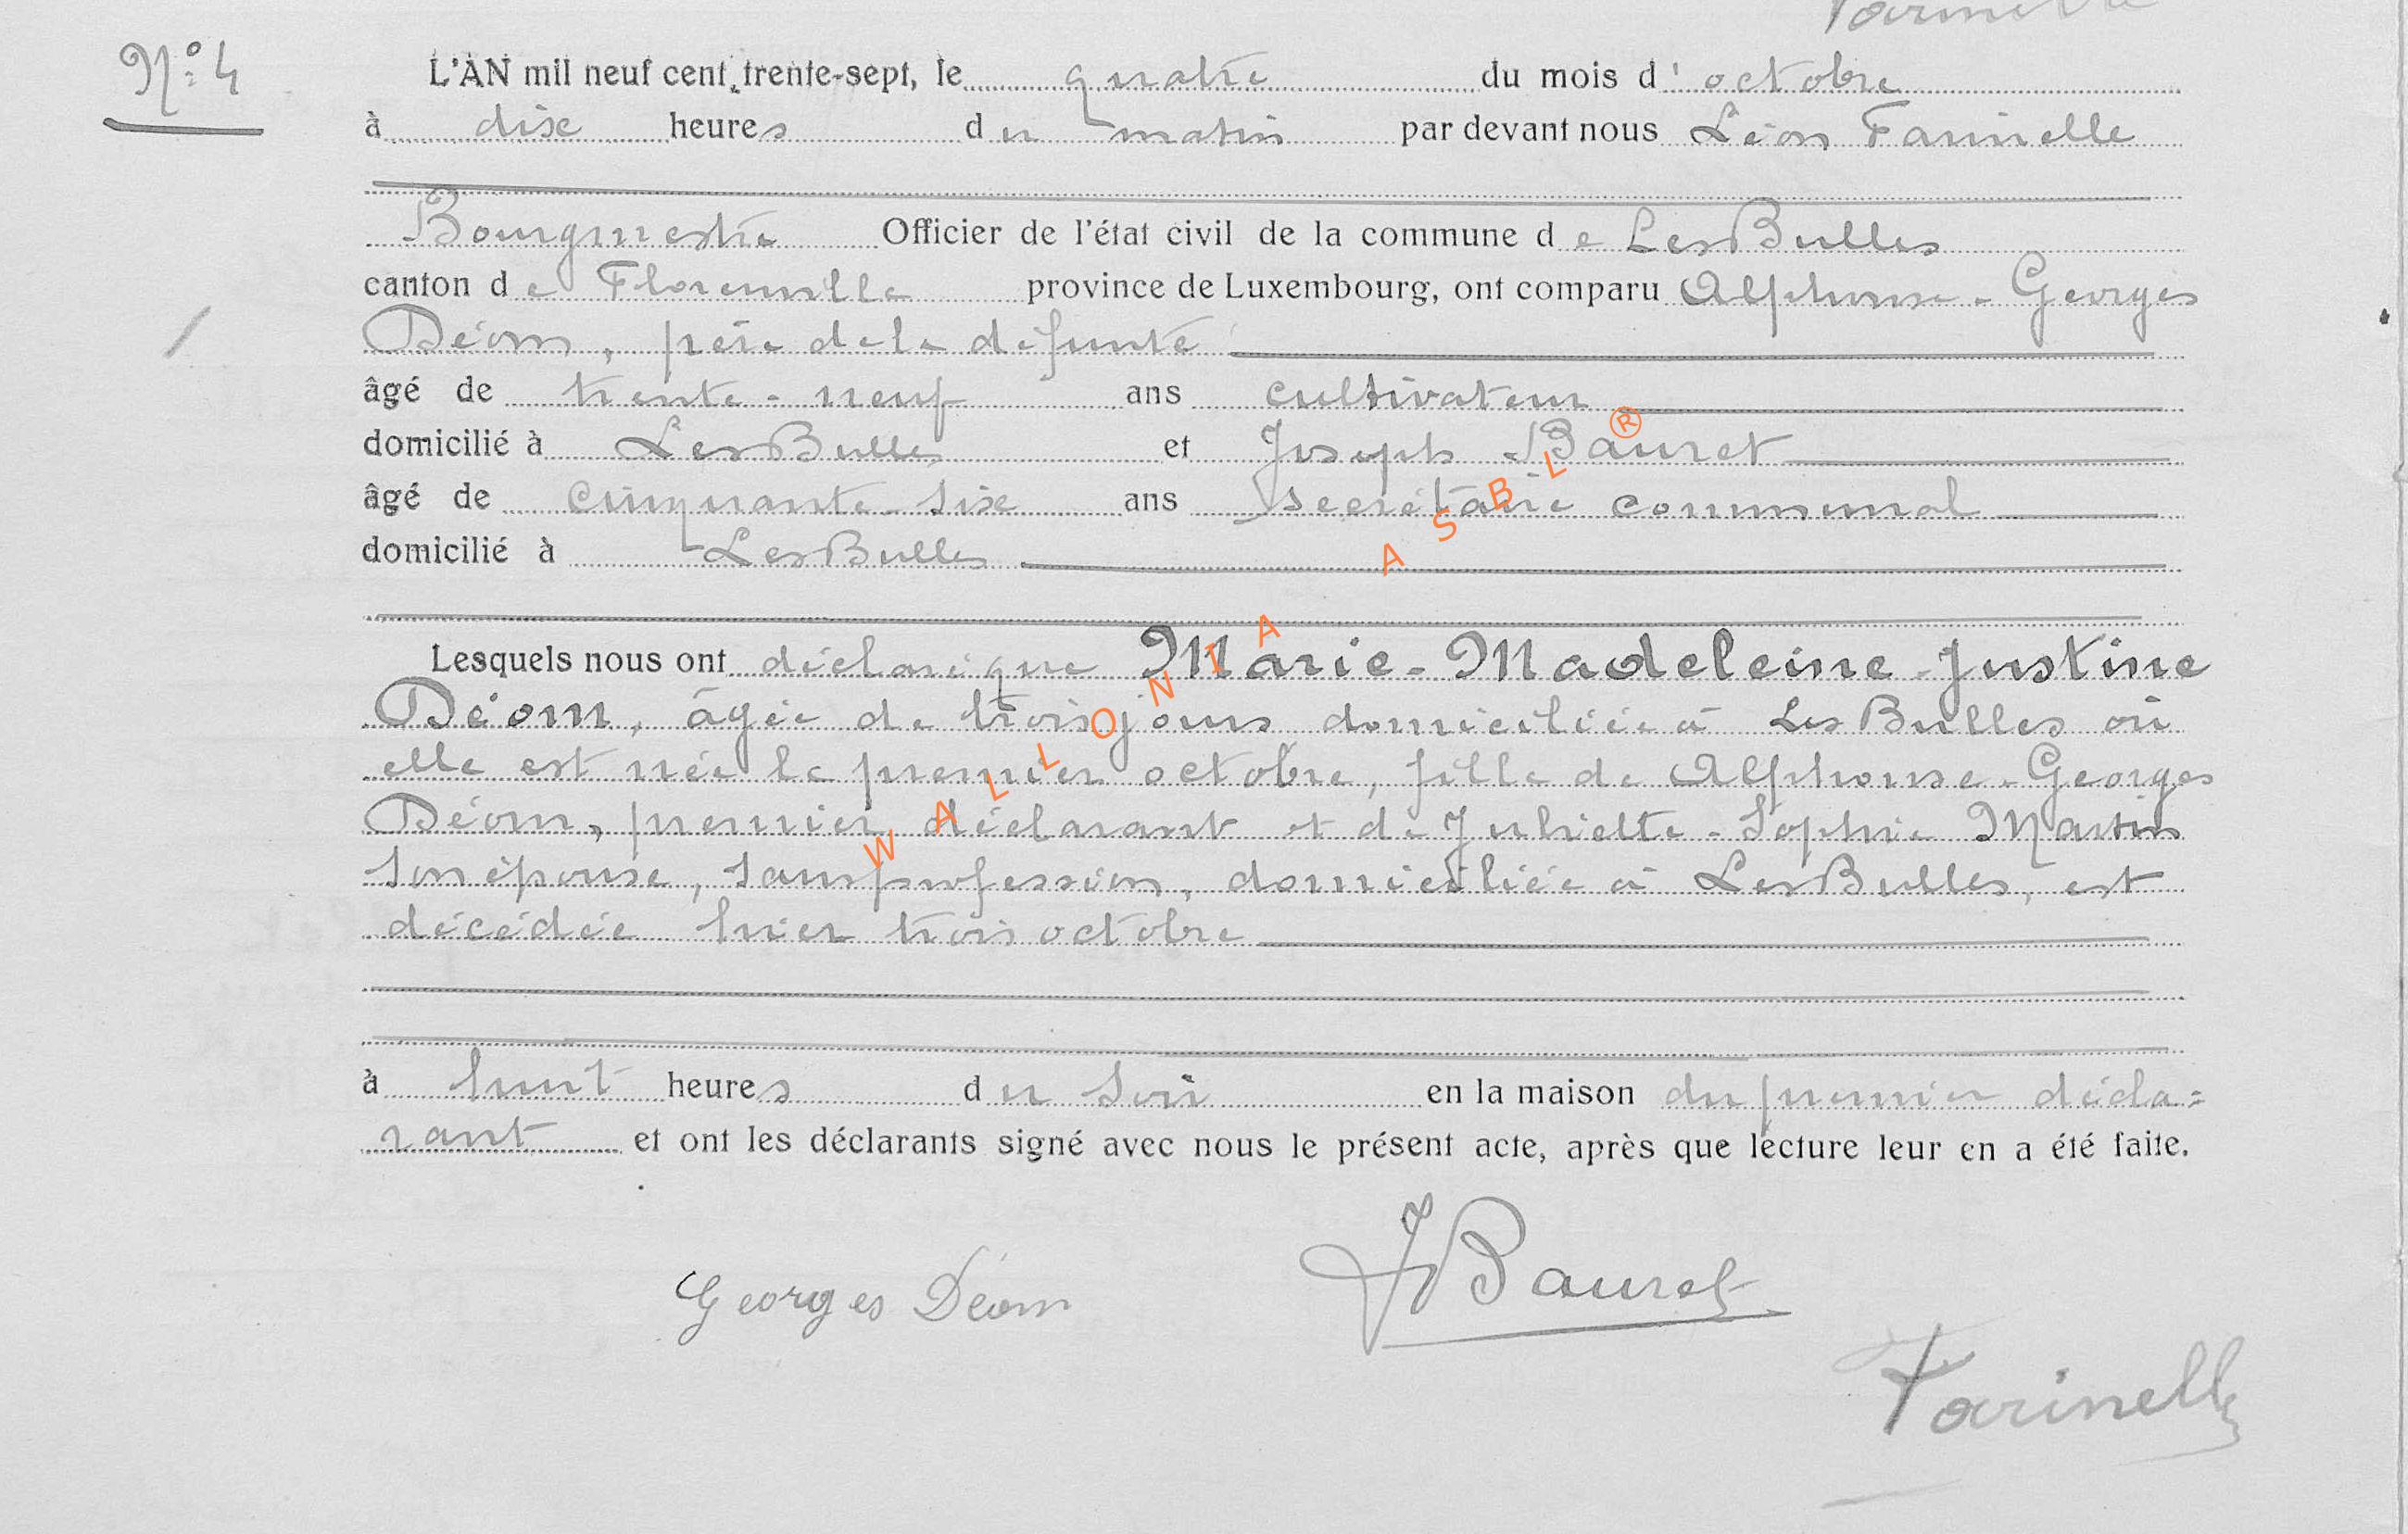 Farinelle
N° 4
L'AN mil neuf cent trente-sept, le quatre du mois d' octobre
à dix heures du matin par devant nous Léon Farinelle
Bourgmestre Officier de l'état civil de la commune de Les Bulles
canton de Florenville province de Luxembourg, ont comparu Alphonse-Georges
Déom, père de la défunte
âgé de trente-neuf ans cultivateur
domicilié à Les Bulles et Joseph Bauret
âgé de cinquante-six ans secrétaire communal
domicilié à Les Bulles
Lesquels nous ont déclaré que Marie-Madeleine-Justine
Déom, âgée de trois jours domiciliée à Les Bulles où
elle est née le premier octobre, fille de Alphonse-Georges
Déom, premier déclarant et de Juliette-Sophie Martin
son épouse, sans profession, domiciliée à Les Bulles, est
décédée hier trois octobre
à huit heures du soir en la maison du premier décla=
rant et ont les déclarants signé avec nous le présent acte, après que lecture leur en a été faite.
Georges Déom
JBauret
Farinelle
WALLONIA ASBL ®